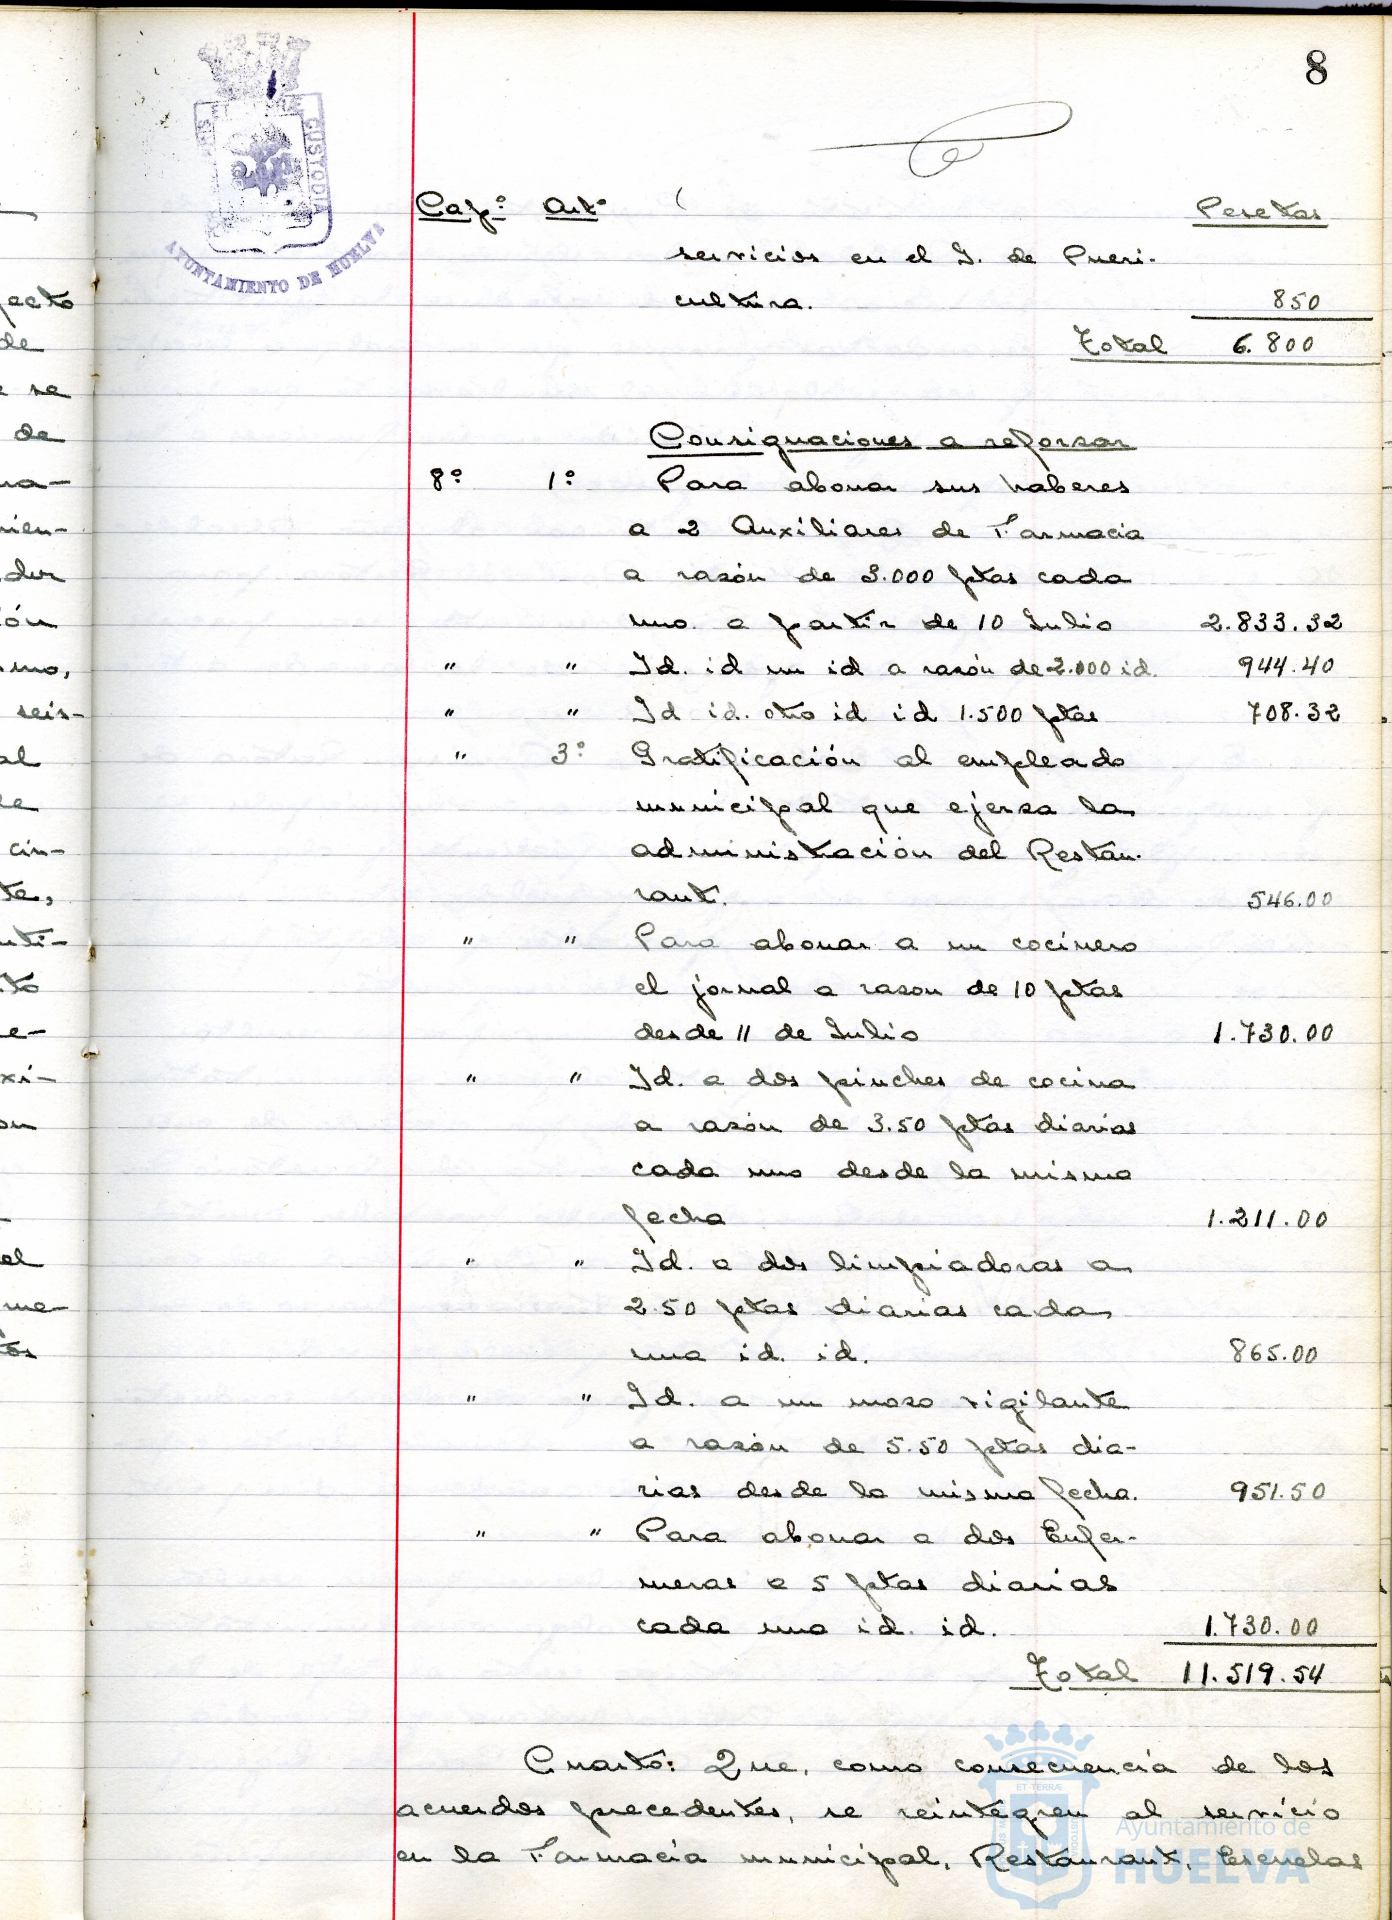 8
PORTUS MARIS ET TERRÆ CUSTODIA
AYUNTAMIENTO DE HUELVA
Capº Artº Pesetas
servicios en el I. de Pueri-
cultura. 850
Total 6.800
Consignaciones a reforsar
8º 1º Para abonar sus haberes
a 2 Auxiliares de Farmacia
a rasón de 3.000 ptas cada
uno a partir de 10 Julio 2.833.32
" " Id. id un id a rasón de 2.000 id. 944.40
" " Id id. otro id id 1.500 ptas 708.32
" 3º Gratificación al empleado
municipal que ejersa la
administración del Restau-
rant. 546.00
" " Para abonar a un cocinero
el jornal a rason de 10 ptas
desde 11 de Julio 1.730.00
" " Id. a dos pinches de cocina
a rasón de 3.50 ptas diarias
cada uno desde la misma
fecha 1.211.00
" " Id. a dos limpiadoras a
2.50 ptas diarias cada
una id. id. 865.00
" " Id. a un moso vigilante
a rasón de 5.50 ptas dia-
rias desde la misma fecha. 951.50
" " Para abonar a dos Enfer-
meras a 5 ptas diarias
cada una id. id. 1.730.00
Total 11.519.54
Cuarto: Que, como consecuencia de los
acuerdos precedentes, se reintegren al servicio
en la Farmacia municipal, Restaurant, Escuelas
Ayuntamiento de
HUELVA